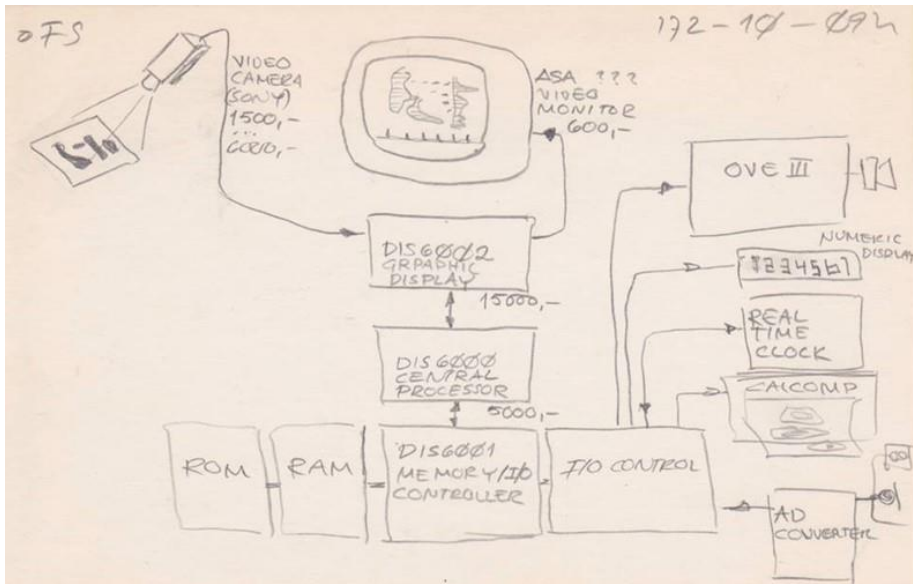 FS
172-10-09
VIDEO
CAMERA
(SONY)
1500,-
...
6000,-
ASA ???
VIDEO
MONITOR
600,-
OVE III
NUMERIC
DISPLAY
1234567
DIS6002
GRPAPHIC
DISPLAY
15000,-
REAL
TIME
CLOCK
DIS6000
CENTRAL
PROCESSOR
5000,-
CALCOMP
ROM
RAM
DIS6001
MEMORY/I/O
CONTROLLER
I/O CONTROL
AD
CONVERTER